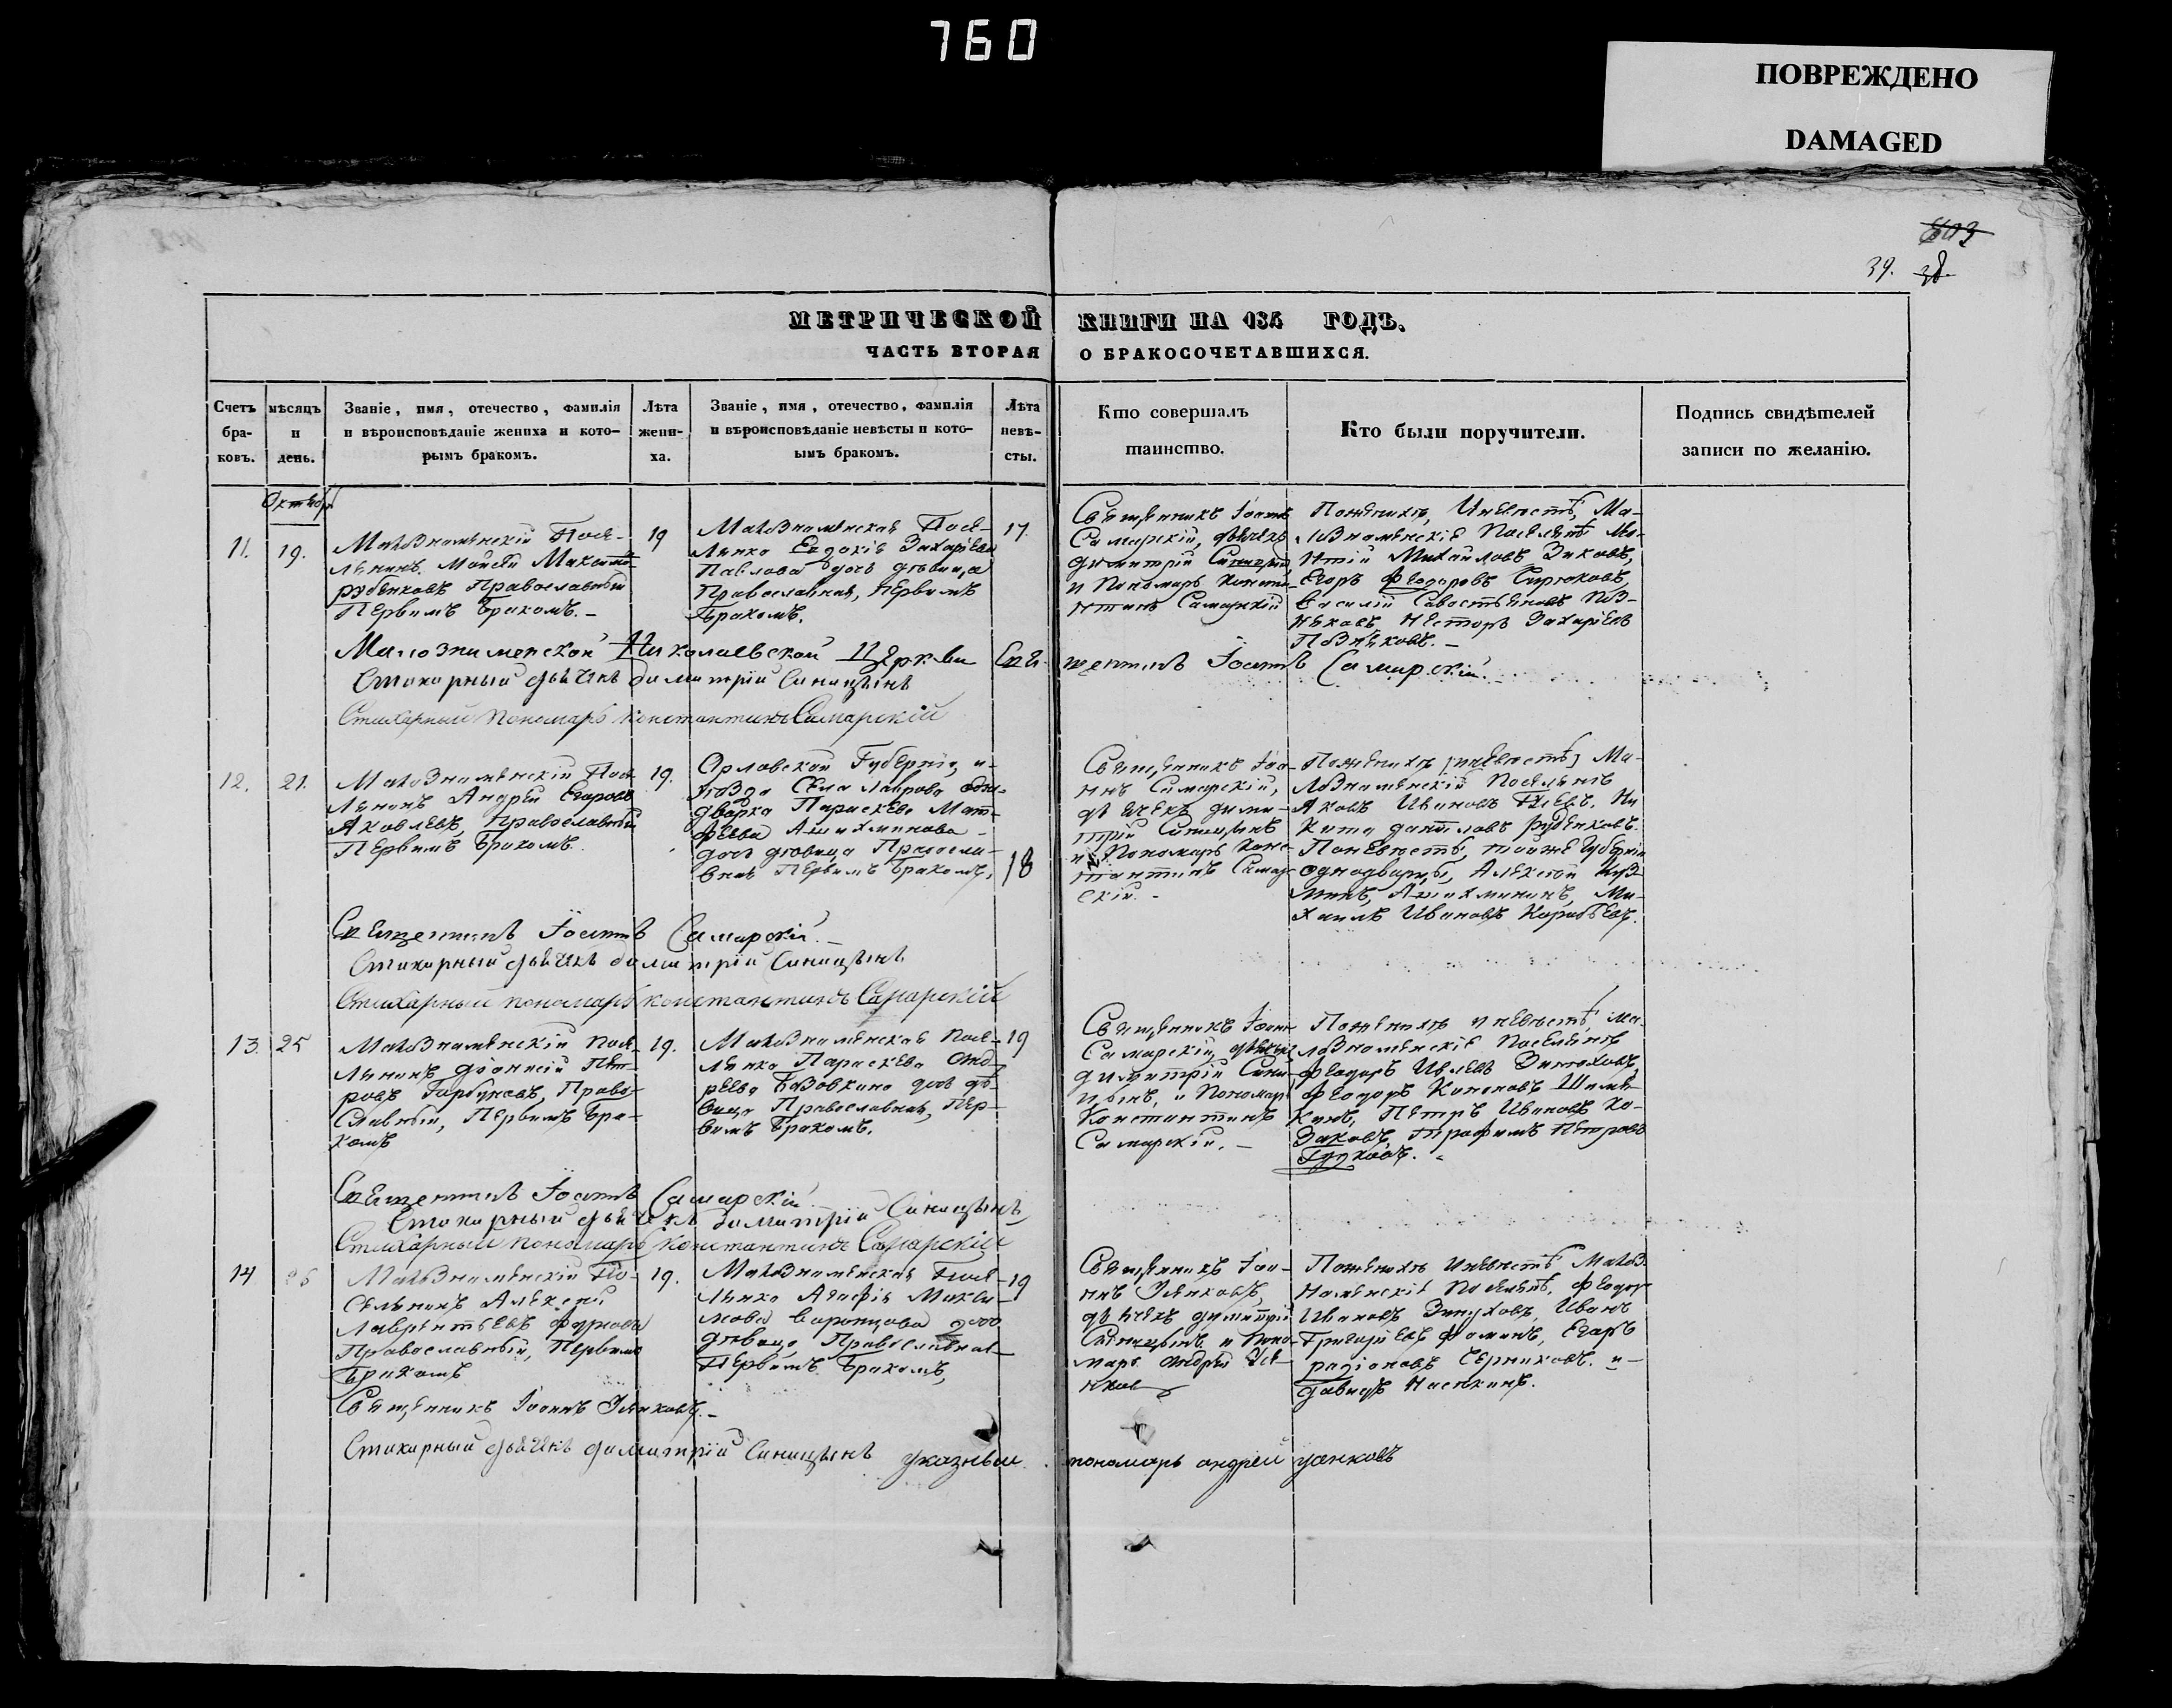 760
ПОВРЕЖДЕНО
DAMAGED
603
39. 38.
МЕТРИЧЕСКОЙ КНИГИ НА 184 ГОДЪ.
ЧАСТЬ ВТОРАЯ О БРАКОСОЧЕТАВШИХСЯ.
Счетъ бра-ковъ.
мѣсяцъ и день.
Званіе, имя, отечество, фамилія
и вѣроисповѣданіе жениха и кото-
рымъ бракомъ.
Лѣта жени-ха.
Званіе, имя, отечество, фамилія
и вѣроисповѣданіе невѣсты и кото-
ымъ бракомъ.
Лѣта невѣ-сты.
Кто совершалъ
таинство.
Кто были поручители.
Подпись свидѣтелей
записи по желанію.
11.
19.
Малознаменскій Посе-
ленинъ, Моисей
Православный
Первымъ бракомъ.-
19
Малознаменская Посе-
лянка Евдокія Захаріева
Павлова дочь девица
Православная, Первымъ
бракомъ.
17.
Священникъ Іоаннъ
Самарскій, дьячекъ
Димитрій Синицынъ
и Пономарь Конста-
нтинъ Самарскій
По женихѣ, и невѣстѣ, Ма-
лознаменскіе Поселяне
Михайловъ Зыковъ,
Егоръ Феодоровъ
Василій Савостьяновъ Поз-
няковъ, Несторъ Захаріевъ
Позняковъ.-
Малознаменской Николаевской Церкви Священникъ Іоаннъ Самарскій.
Стихарный дьячекъ Димитрій Синицынъ
Стихарный пономарь Константинъ Самарскій
12.
21.
Малознаменскій Посе-
ленинъ Андрей Егоровъ
Яковлевъ, Православный
Первымъ бракомъ.
19.
Орловской Губерніи, у-
ѣзда Села Лаврова одно-
дворка Параскева Мат-
феева
дочь девица Правосла-
вная Первымъ бракомъ,
18
Священникъ Іоа-
ннъ Самарскій,
дьячекъ Дими-
трій Синицынъ
и Пономарь Конс-
тантинъ Самар-
скій.-
По женихѣ (и невѣстѣ) Ма-
лознаменскій Поселяне
Яковъ Ивановъ Ни-
кита Даниловъ Рубенковъ.
По невѣстѣ, той же Губерніи
однодворцы, Алексей Куз-
минъ, Ми-
хаилъ Ивановъ
Священникъ Іоаннъ Самарскій.-
Стихарный дьячекъ Димитрій Синицынъ.
Стихарный пономарь Константинъ Самарскій
13.
25
Малознаменскій Посе-
ленинъ Діонисій Пет-
ровъ Горбуновъ, Право-
славный, Первымъ бра-
комъ
19.
Малознаменская Посе-
лянка Параскева Анд-
реева дочь дѣ-
вица Православная, Пер-
вымъ бракомъ.
19
Священникъ Іоаннъ
Самарскій, дьячекъ
Димитрій Сини-
цынъ, и Пономарь
Константинъ
Самарскій.-
По женихѣ и невѣстѣ, Ма-
лознаменскіе Поселяне
Феодоръ
Феодоръ
Петръ Ивановъ Ко-
заковъ, Трофимъ Петровъ
Священникъ Іоаннъ Самарскій
Стихарный дьячекъ Димитрій Синицынъ
Стихарный пономарь Константинъ Самарскій
14
Малознаменскій По-
селенинъ Алексей
Лаврентьевъ
Православный, Первымъ
бракомъ
19.
Малознаменская Посе-
лянка Агафія Макси-
мова Воронцова дочь
девица Православная
Первымъ бракомъ,
19
Священникъ Іоа-
ннъ
дьячекъ Димитрій
Синицынъ и Поно-
марь Андрей
По женихѣ и невѣстѣ Малоз-
наменскіе Поселяне, Феодоръ
Ивановъ Иванъ
Григорьевъ Фоминъ, Егоръ
Радіоновъ Черниковъ. и-
Давидъ
Священникъ Іоаннъ
Стихарный дьячекъ Димитрій Синицынъ указный пономарь Андрей